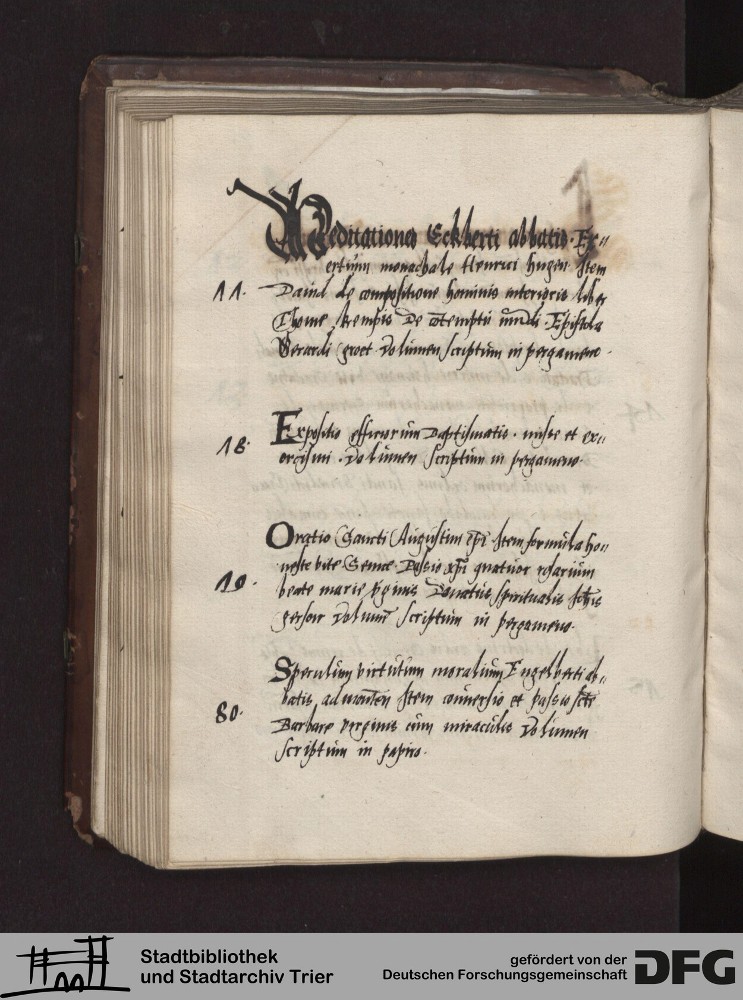 Meditationes Eckberti abbatis. Ex=
ertium monachale Henrici hugen Item
11. Dauid de compositione hominis interioris liber
Thome kempis De cōtemptu mūdi. Epistola
Gerardi groet Volumen scriptum in pergameno.
18. Expositio efficiorum Baptismatis. misse et ex=
orcismi. Volumen scriptum in pergameno.
Oratio Sancti Augustini Item formula ho=
neste vite Passio xp̄i quatuor rosarium
19. beate marie Donatus spiritualis
gerson Volumē scriptum in pergameno.
Speculum virtutum moralium Engelberti ab=
batis admonten̄ Item conuersio et passio scte
80. Barbare verginis cum miraculis Volumen
scriptum in papiro.
Stadtbibliothek
und Stadtarchiv Trier
gefördert von der
Deutschen Forschungsgemeinschaft
DFG